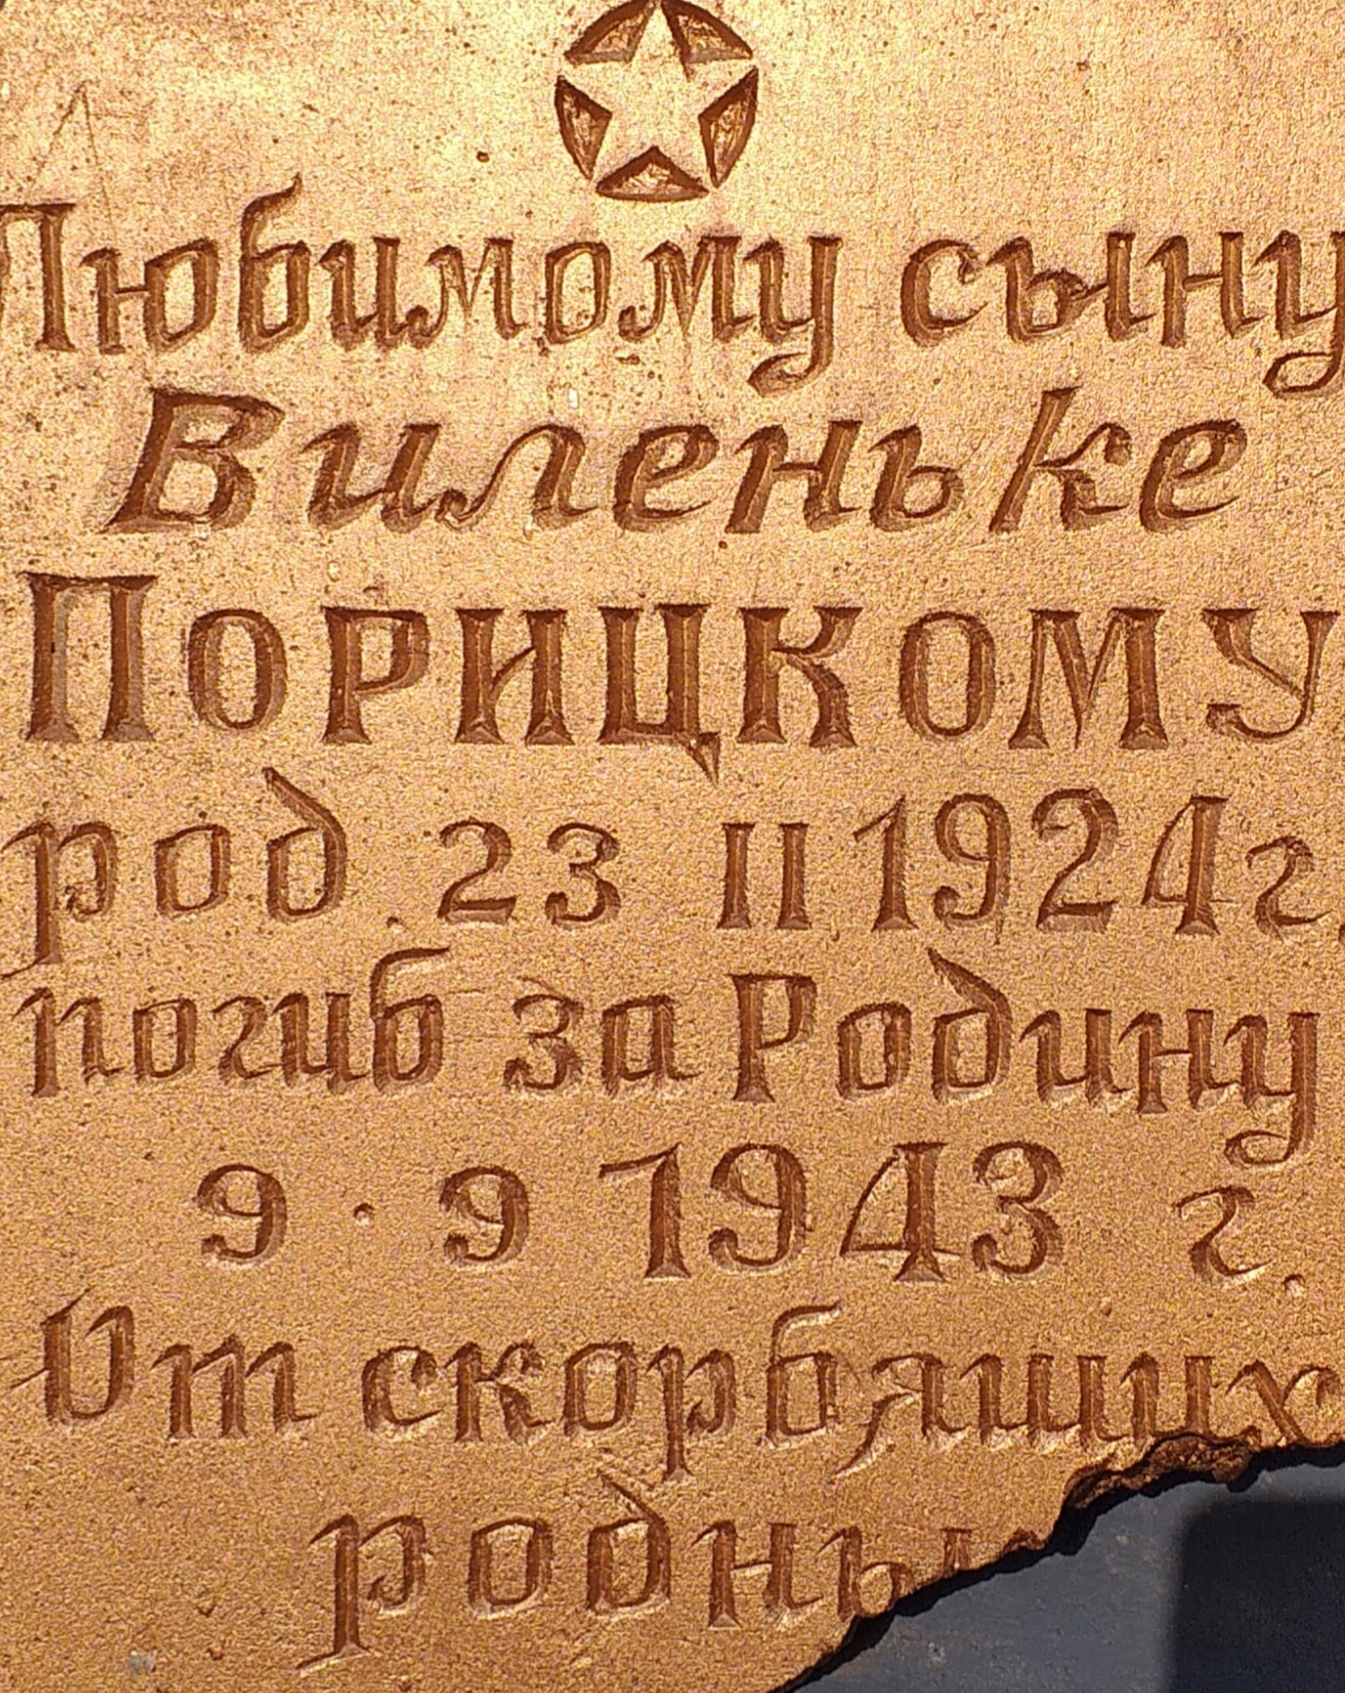 Любимому сыну
Виленьке
ПОРИЦКОМУ
род. 23 II 1924г.
погиб за Родину
9·9 1943 г.
От скорбящих
родны